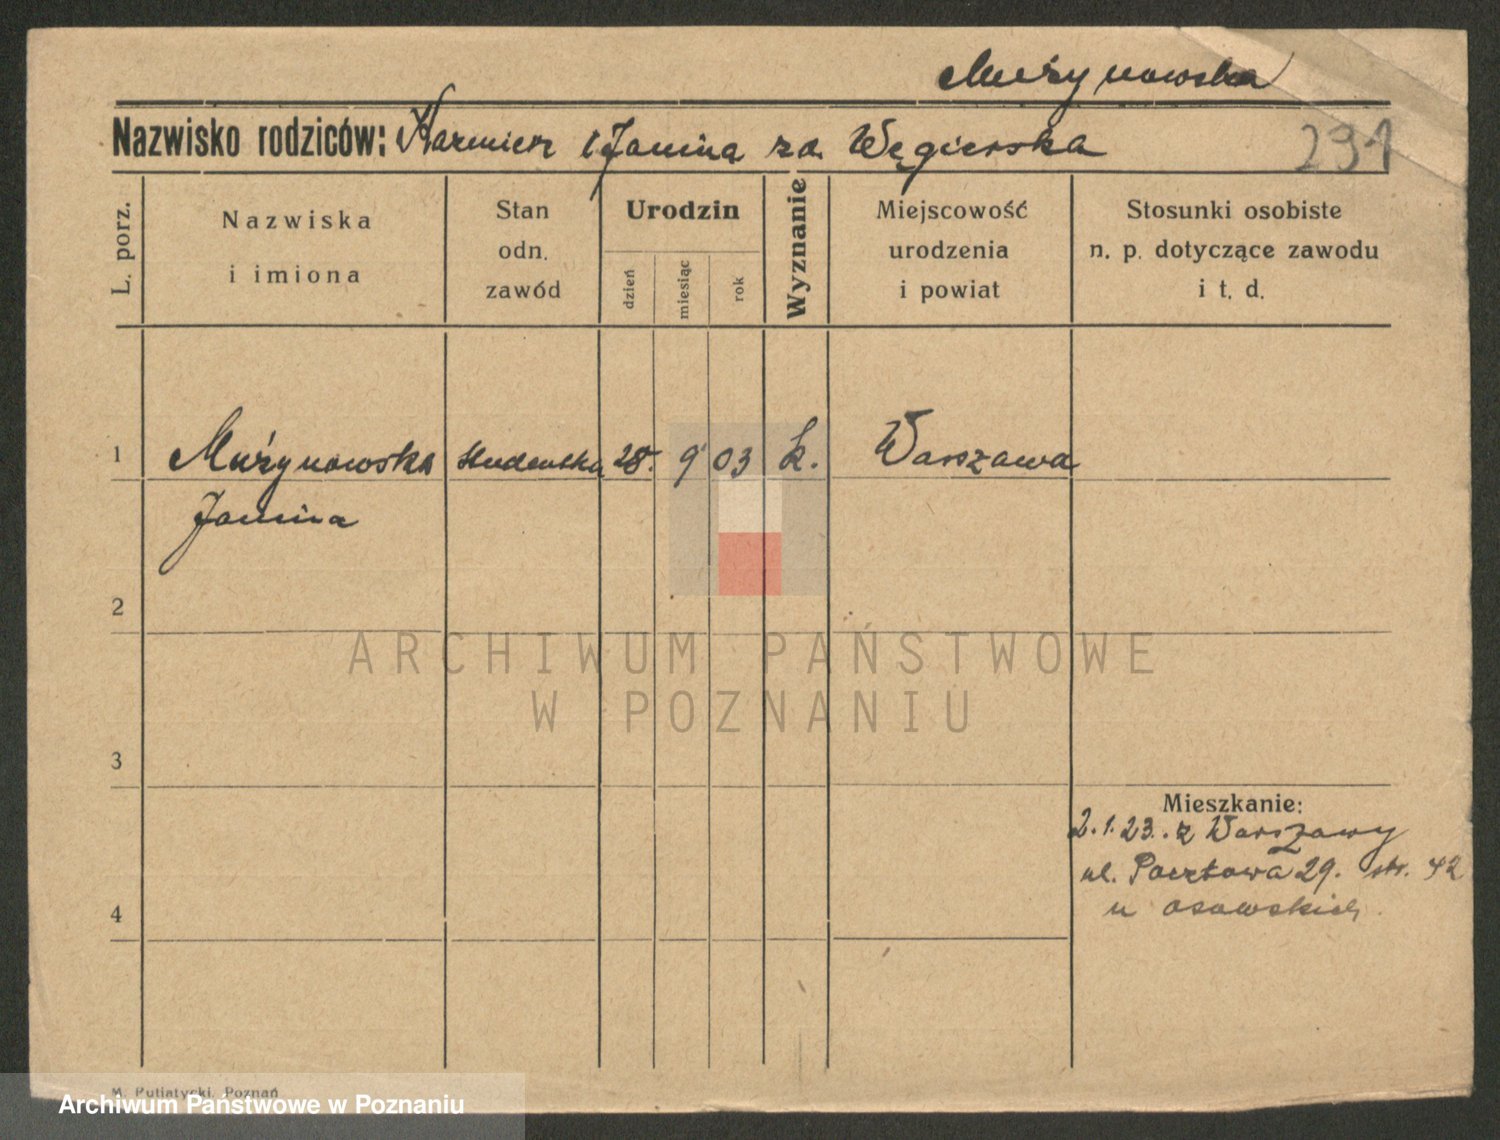 Mużynowska
Nazwisko rodziców: Kazmierz i Janina zd. Węgierska
291
L. porz.
Nazwiska
i imiona
Stan
odn.
zawód
Urodzin
dzień
miesiąc
rok
Wyznanie
Miejscowość
urodzenia
i powiat
Stosunki osobiste
n. p. dotyczące zawodu
i t. d.
1 Mużynowska studentka 28. 9 03 k. Warszawa
Janina
2
ARCHIWUM PAŃSTWOWE
W POZNANIU
3
Mieszkanie:
2.1.23. z Warszawy
ul. Pocztowa 29. str. 42
4
u Osowskich
M. Putiatycki, Poznań
Archiwum Państwowe w Poznaniu